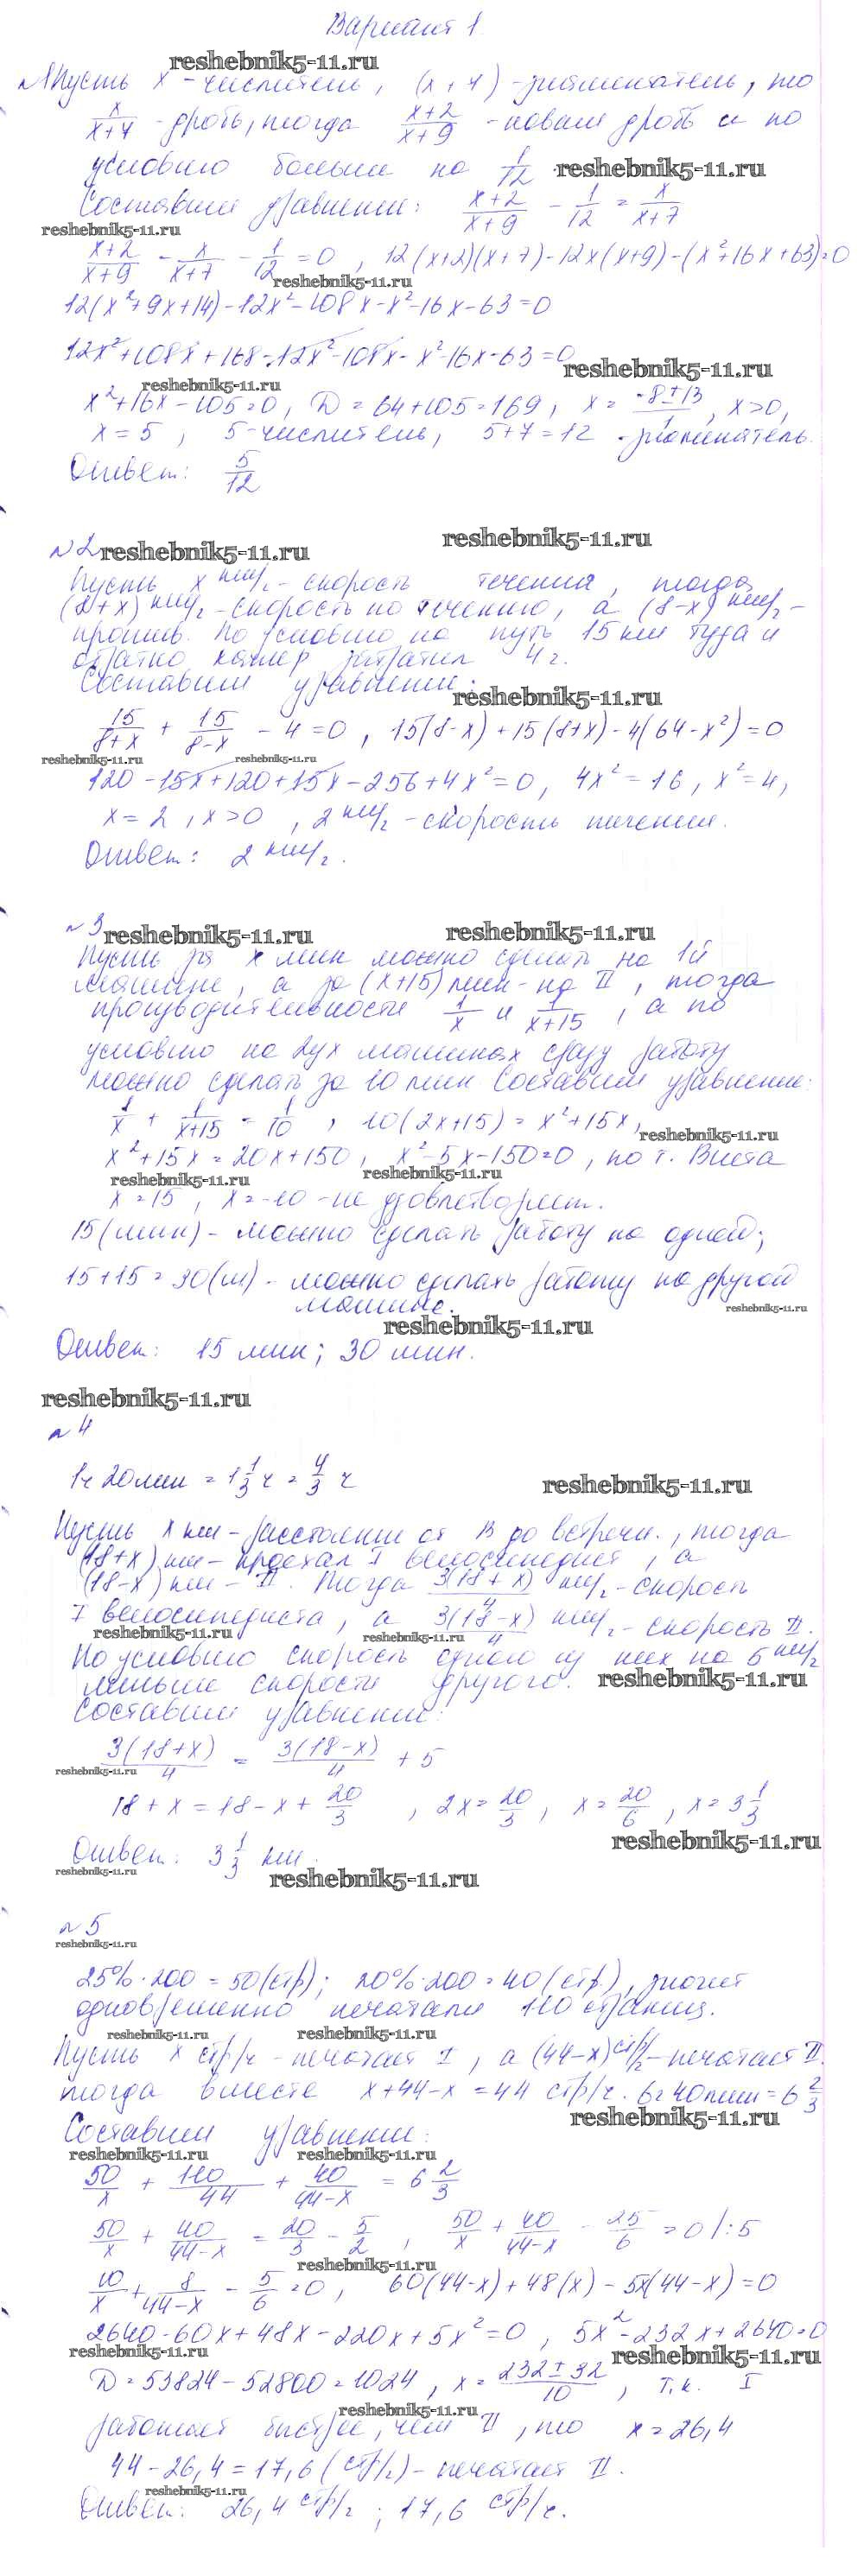 Вариант 1.
reshebnik5-11.ru
№1 Пусть x - числитель, (x+7) - знаменатель, то
x/(x+7) - дробь, тогда (x+2)/(x+9) - новая дробь и по
условию больше на 1/12. reshebnik5-11.ru
Составим уравнение: (x+2)/(x+9) - 1/12 = x/(x+7)
reshebnik5-11.ru
(x+2)/(x+9) - x/(x+7) - 1/12 = 0, 12(x+2)(x+7)-12x(x+9)-(x²+16x+63)=0
reshebnik5-11.ru
12(x²+9x+14)-12x²-108x-x²-16x-63=0
12x²+108x+168-12x²-108x-x²-16x-63=0
reshebnik5-11.ru
reshebnik5-11.ru
x²+16x-105=0, D=64+105=169, x=(-8±13)/1, x>0,
x=5, 5-числитель, 5+7=12 - знаменатель.
Ответ: 5/12
reshebnik5-11.ru
№2 reshebnik5-11.ru
Пусть x км/ч - скорость течения, тогда
(8+x) км/ч - скорость по течению, а (8-x) км/ч -
против. По условию на путь 15 км туда и
обратно катер затратил 4 ч.
Составим уравнение:
reshebnik5-11.ru
15/(8+x) + 15/(8-x) - 4 = 0, 15(8-x)+15(8+x)-4(64-x²)=0
reshebnik5-11.ru reshebnik5-11.ru
120-15x+120+15x-256+4x²=0, 4x²=16, x²=4,
x=2, x>0, 2 км/ч - скорость течения.
Ответ: 2 км/ч.
№3 reshebnik5-11.ru reshebnik5-11.ru
Пусть за x мин можно сделать на 1й
машине, а за (x+15) мин - на II, тогда
производительности 1/x и 1/(x+15), а по
условию на двух машинах сразу работу
можно сделать за 10 мин. Составим уравнение:
1/x + 1/(x+15) = 1/10, 10(2x+15)=x²+15x,
reshebnik5-11.ru
x²+15x=20x+150, x²-5x-150=0, по т. Виета
reshebnik5-11.ru reshebnik5-11.ru
x=15, x=-10 - не удовлетворяет.
15 (мин) - можно сделать работу на одной;
15+15=30 (м) - можно сделать работу на другой
машине. reshebnik5-11.ru
reshebnik5-11.ru
Ответ: 15 мин; 30 мин.
reshebnik5-11.ru
№4
1ч 20мин = 1 1/3 ч = 4/3 ч
reshebnik5-11.ru
Пусть x км - расстояние от В до встречи, тогда
(18+x) км - проехал I велосипедист, а
(18-x) км - II. Тогда 3(18+x)/4 км/ч - скорость
I велосипедиста, а 3(18-x)/4 км/ч - скорость II.
reshebnik5-11.ru reshebnik5-11.ru
По условию скорость одного из них на 5 км/ч
меньше скорости другого. reshebnik5-11.ru
Составим уравнение:
3(18+x)/4 = 3(18-x)/4 + 5
reshebnik5-11.ru
18+x=18-x+20/3, 2x=20/3, x=20/6, x=3 1/3
reshebnik5-11.ru
Ответ: 3 1/3 км.
reshebnik5-11.ru reshebnik5-11.ru
№5
reshebnik5-11.ru
25%·200=50 (стр); 20%·200=40 (стр), значит
одновременно печатали 110 страниц.
reshebnik5-11.ru reshebnik5-11.ru
Пусть x стр/ч - печатает I, а (44-x) стр/ч - печатает II,
тогда вместе x+44-x=44 стр/ч. 6ч 40мин = 6 2/3
reshebnik5-11.ru
Составим уравнение:
reshebnik5-11.ru reshebnik5-11.ru
50/x + 110/44 + 40/(44-x) = 6 2/3
50/x + 40/(44-x) = 20/3 - 5/2, 50/x + 40/(44-x) - 25/6 = 0 |:5
reshebnik5-11.ru
10/x + 8/(44-x) - 5/6 = 0, 60(44-x)+48(x)-5x(44-x)=0
2640-60x+48x-220x+5x²=0, 5x²-232x+2640=0
reshebnik5-11.ru reshebnik5-11.ru
D=53824-52800=1024, x=(232±32)/10, т.к. I
reshebnik5-11.ru
работает быстрее, чем II, то x=26,4
44-26,4=17,6 (стр/ч) - печатает II.
reshebnik5-11.ru
Ответ: 26,4 стр/ч; 17,6 стр/ч.